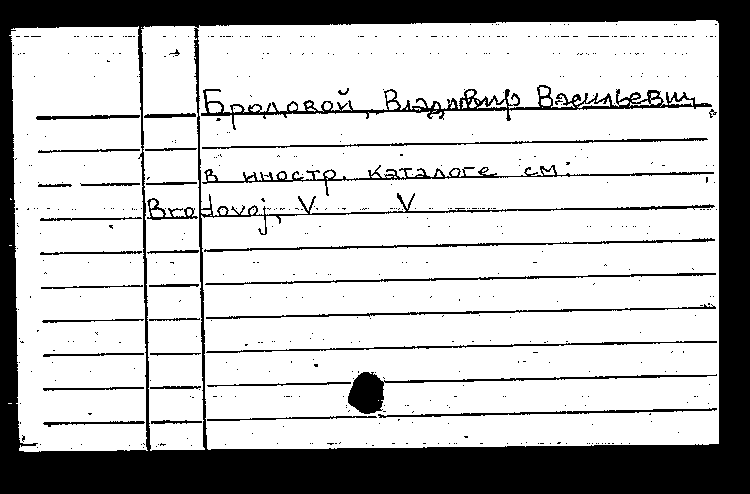 Бродовой, Владимир Васильевич
в иностр. каталоге см:
Brodovoj, V V